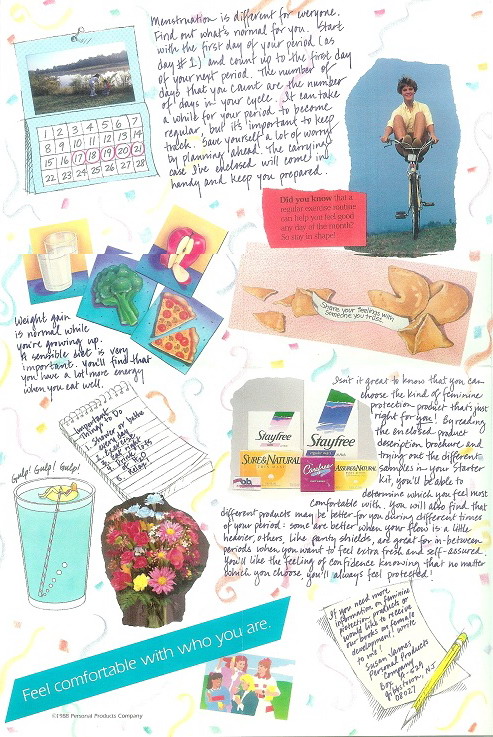 Menstruation is different for everyone.
Find out what's normal for you. Start
with the first day of your period (as
day #1) and count up to the first day
of your next period. The number of
days that you count are the number
of days in your cycle. It can take
a while for your period to become
regular, but it's important to keep
track. Save yourself a lot of worry
by planning ahead. The carrying
case I've enclosed will come in
handy and keep you prepared.
1 2 3 4 5 6 7
8 9 10 11 12 13 14
15 16 17 18 19 20 21
22 23 24 25 26 27 28
Did you know that a
regular exercise routine
can help you feel good
any day of the month?
So stay in shape!
Share your feelings with
someone you trust.
Weight gain
is normal while
you're growing up.
A sensible diet is very
important. You'll find that
you have a lot more energy
when you eat well.
Important
Things to Do
Shower or bathe
every day
Exercise
Relax
Gulp! Gulp! Gulp!
Stayfree
Stayfree
SURE & NATURAL
Carefree
SURE & NATURAL
o.b.
Isn't it great to know that you can
choose the kind of feminine
protection product that's just
right for you! By reading
the enclosed product
description brochure and
trying out the different
samples in your Starter
kit, you'll be able to
determine which you feel most
comfortable with. You will also find that
different products may be better for you during different times
of your period: some are better when your flow is a little
heavier, others, like panty shields, are great for in-between
periods when you want to feel extra fresh and self-assured.
You'll like the feeling of confidence knowing that no matter
which you choose, you'll always feel protected!
Feel comfortable with who you are.
If you need more
information on feminine
protection products or
would like to receive
our books on female
development, write
to me!
Susan James
Personal Products
Company
Box A-629
Gibbstown, NJ
08027
©1988 Personal Products Company